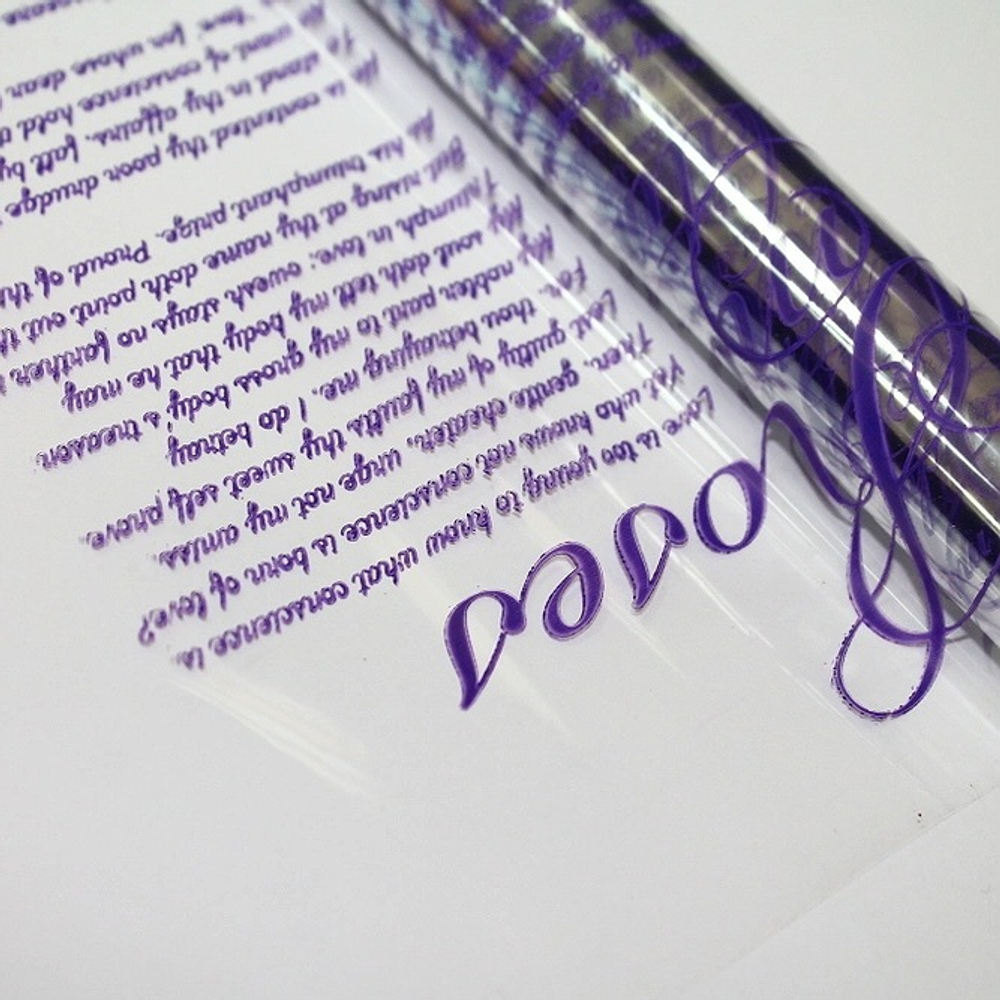 Loves
Love is too young to know what conscience is.
Yet who knows not conscience is born of love?
Then, gentle cheater, urge not my amiss.
Lest guilty of my faults thy sweet self prove.
For, thou betraying me, I do betray
My nobler part to my gross body's treason
My soul doth tell my body that he may
Triumph in love; owesh stays no farther
But rising at thy name doth point out
As his triumphant prize. Proud of
He is contented thy poor drudge
To stand in thy affairs, fall by
No want of conscience hold
"love" for whose dear